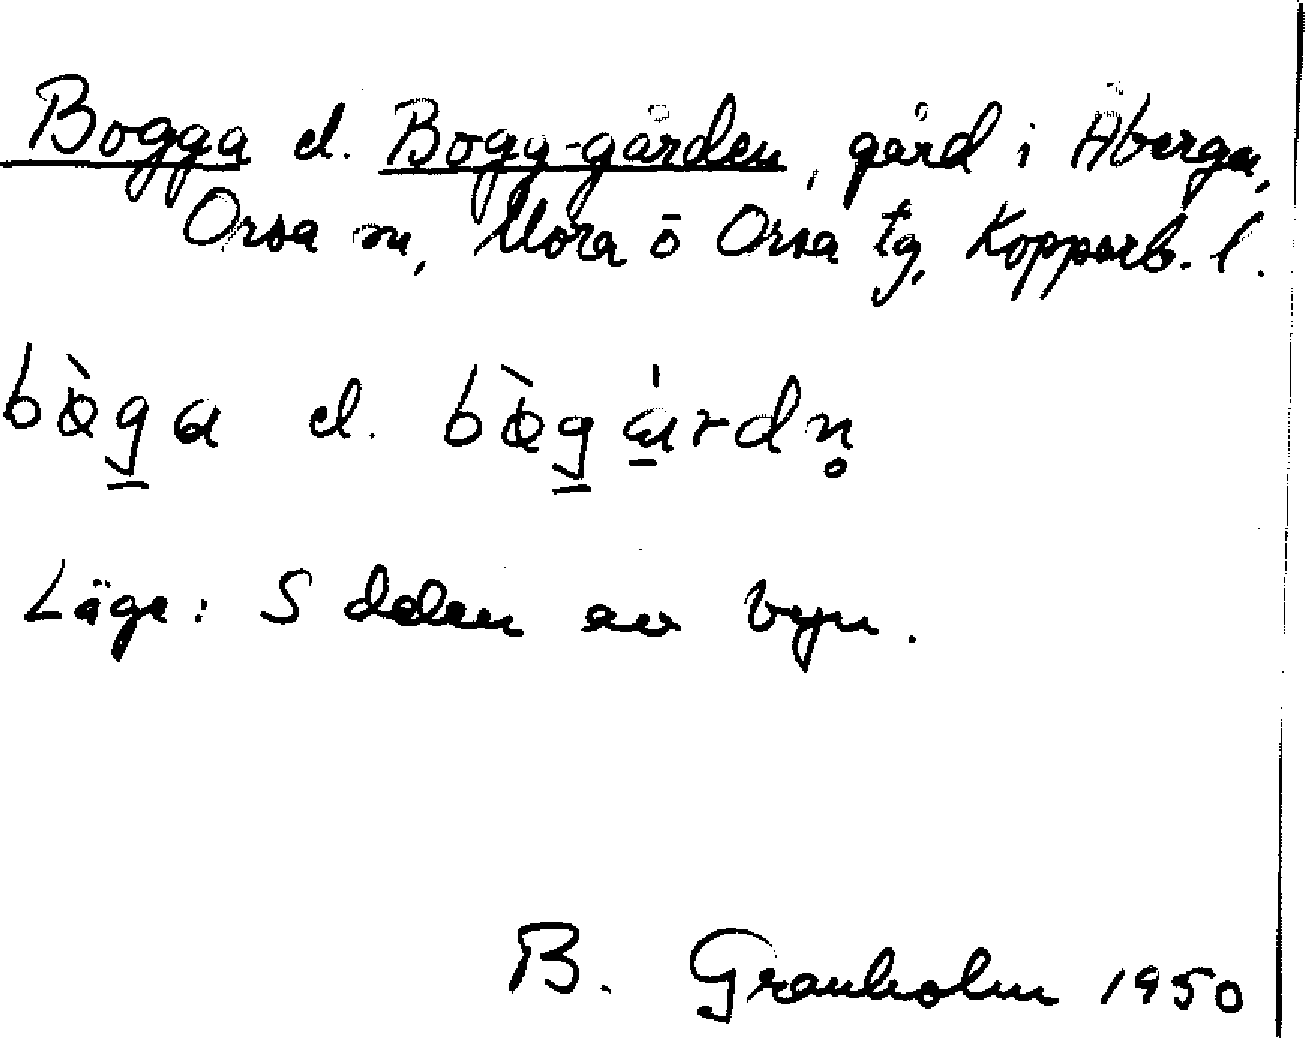 Bogga el. Bogg-gården, gård i Åberga,
Orsa sn, Mora o Orsa tg, Kopparb. l.
el.
Läge: S delen av byn.
B. Granholm 1950